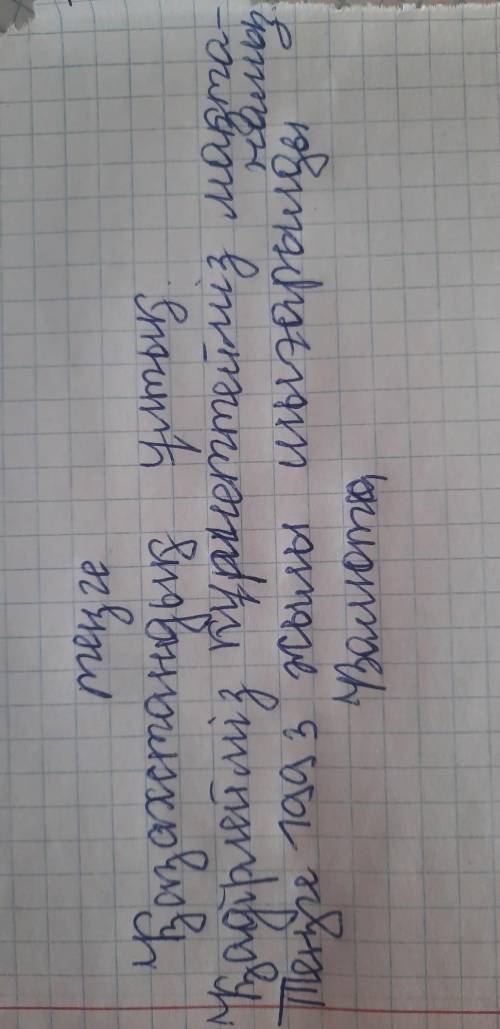 теңге
Қазахстандық ұлттық
Қадірлейміз құрметтейміз мақта-
намыз
Теңге 1993 жылы шығарылды
Валюта